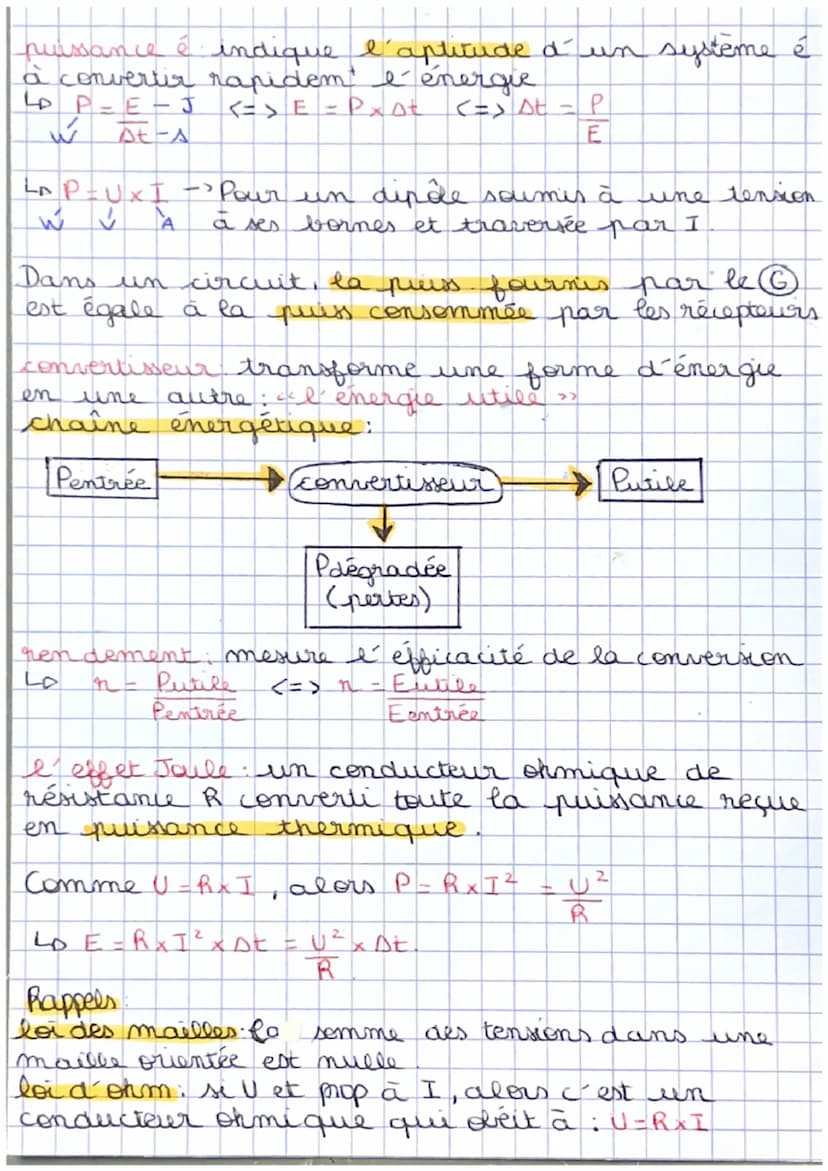 puissance é : indique l'aptitude d'un système é
à convertir rapidemt l'énergie
↳ P = E/Δt <=> E = P x Δt <=> Δt = P/E
W J s
↳ P = U x I -> Pour un dipôle soumis à une tension
W V A à ses bornes et traversée par I.
Dans un circuit, la puiss fournis par le G
est égale à la puiss consommée par les récepteurs
convertisseur : transforme une forme d'énergie
en une autre : «l'énergie utile »
chaîne énergétique :
Pentrée convertisseur Putile
Pdégradée
(pertes)
rendement : mesure l'éfficacité de la conversion
↳ n = Putile/Pentrée <=> n = Eutile/Eentrée
l'effet Joule : un conducteur ohmique de
résistance R converti toute la puissance reçue
en puissance thermique.
Comme U = R x I, alors P = R x I² = U²/R
↳ E = R x I² x Δt = U²/R x Δt.
Rappels :
loi des mailles : la somme des tensions dans une
maille orientée est nulle.
loi d'ohm : si U et prop à I, alors c'est un
conducteur ohmique qui obéit à : U = R x I